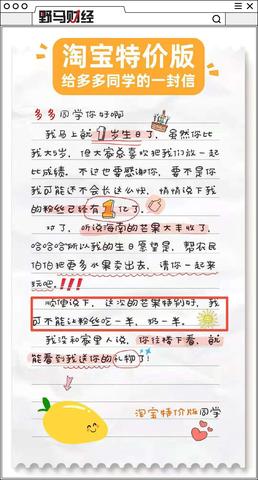 野马财经
淘宝特价版
给多多同学的一封信
多多同学你好啊
我马上就1岁生日了，虽然你比
我大5岁，但大家总喜欢把我们放一起
比成绩。不过也要感谢你，要不是你
我可能还不会长这么快，悄悄说下我
的粉丝已经有1亿了。
对了，听说海南的芒果大丰收了，
哈哈哈所以我的生日愿望是，帮农民
伯伯把更多水果卖出去，请你一起来
玩吧！！！
顺便说下，这次的芒果特别好，我
可不能让粉丝吃一半，扔一半。
我没和家里人说，你往楼下看，就
能看到我送你的礼物了！
淘宝特价版同学